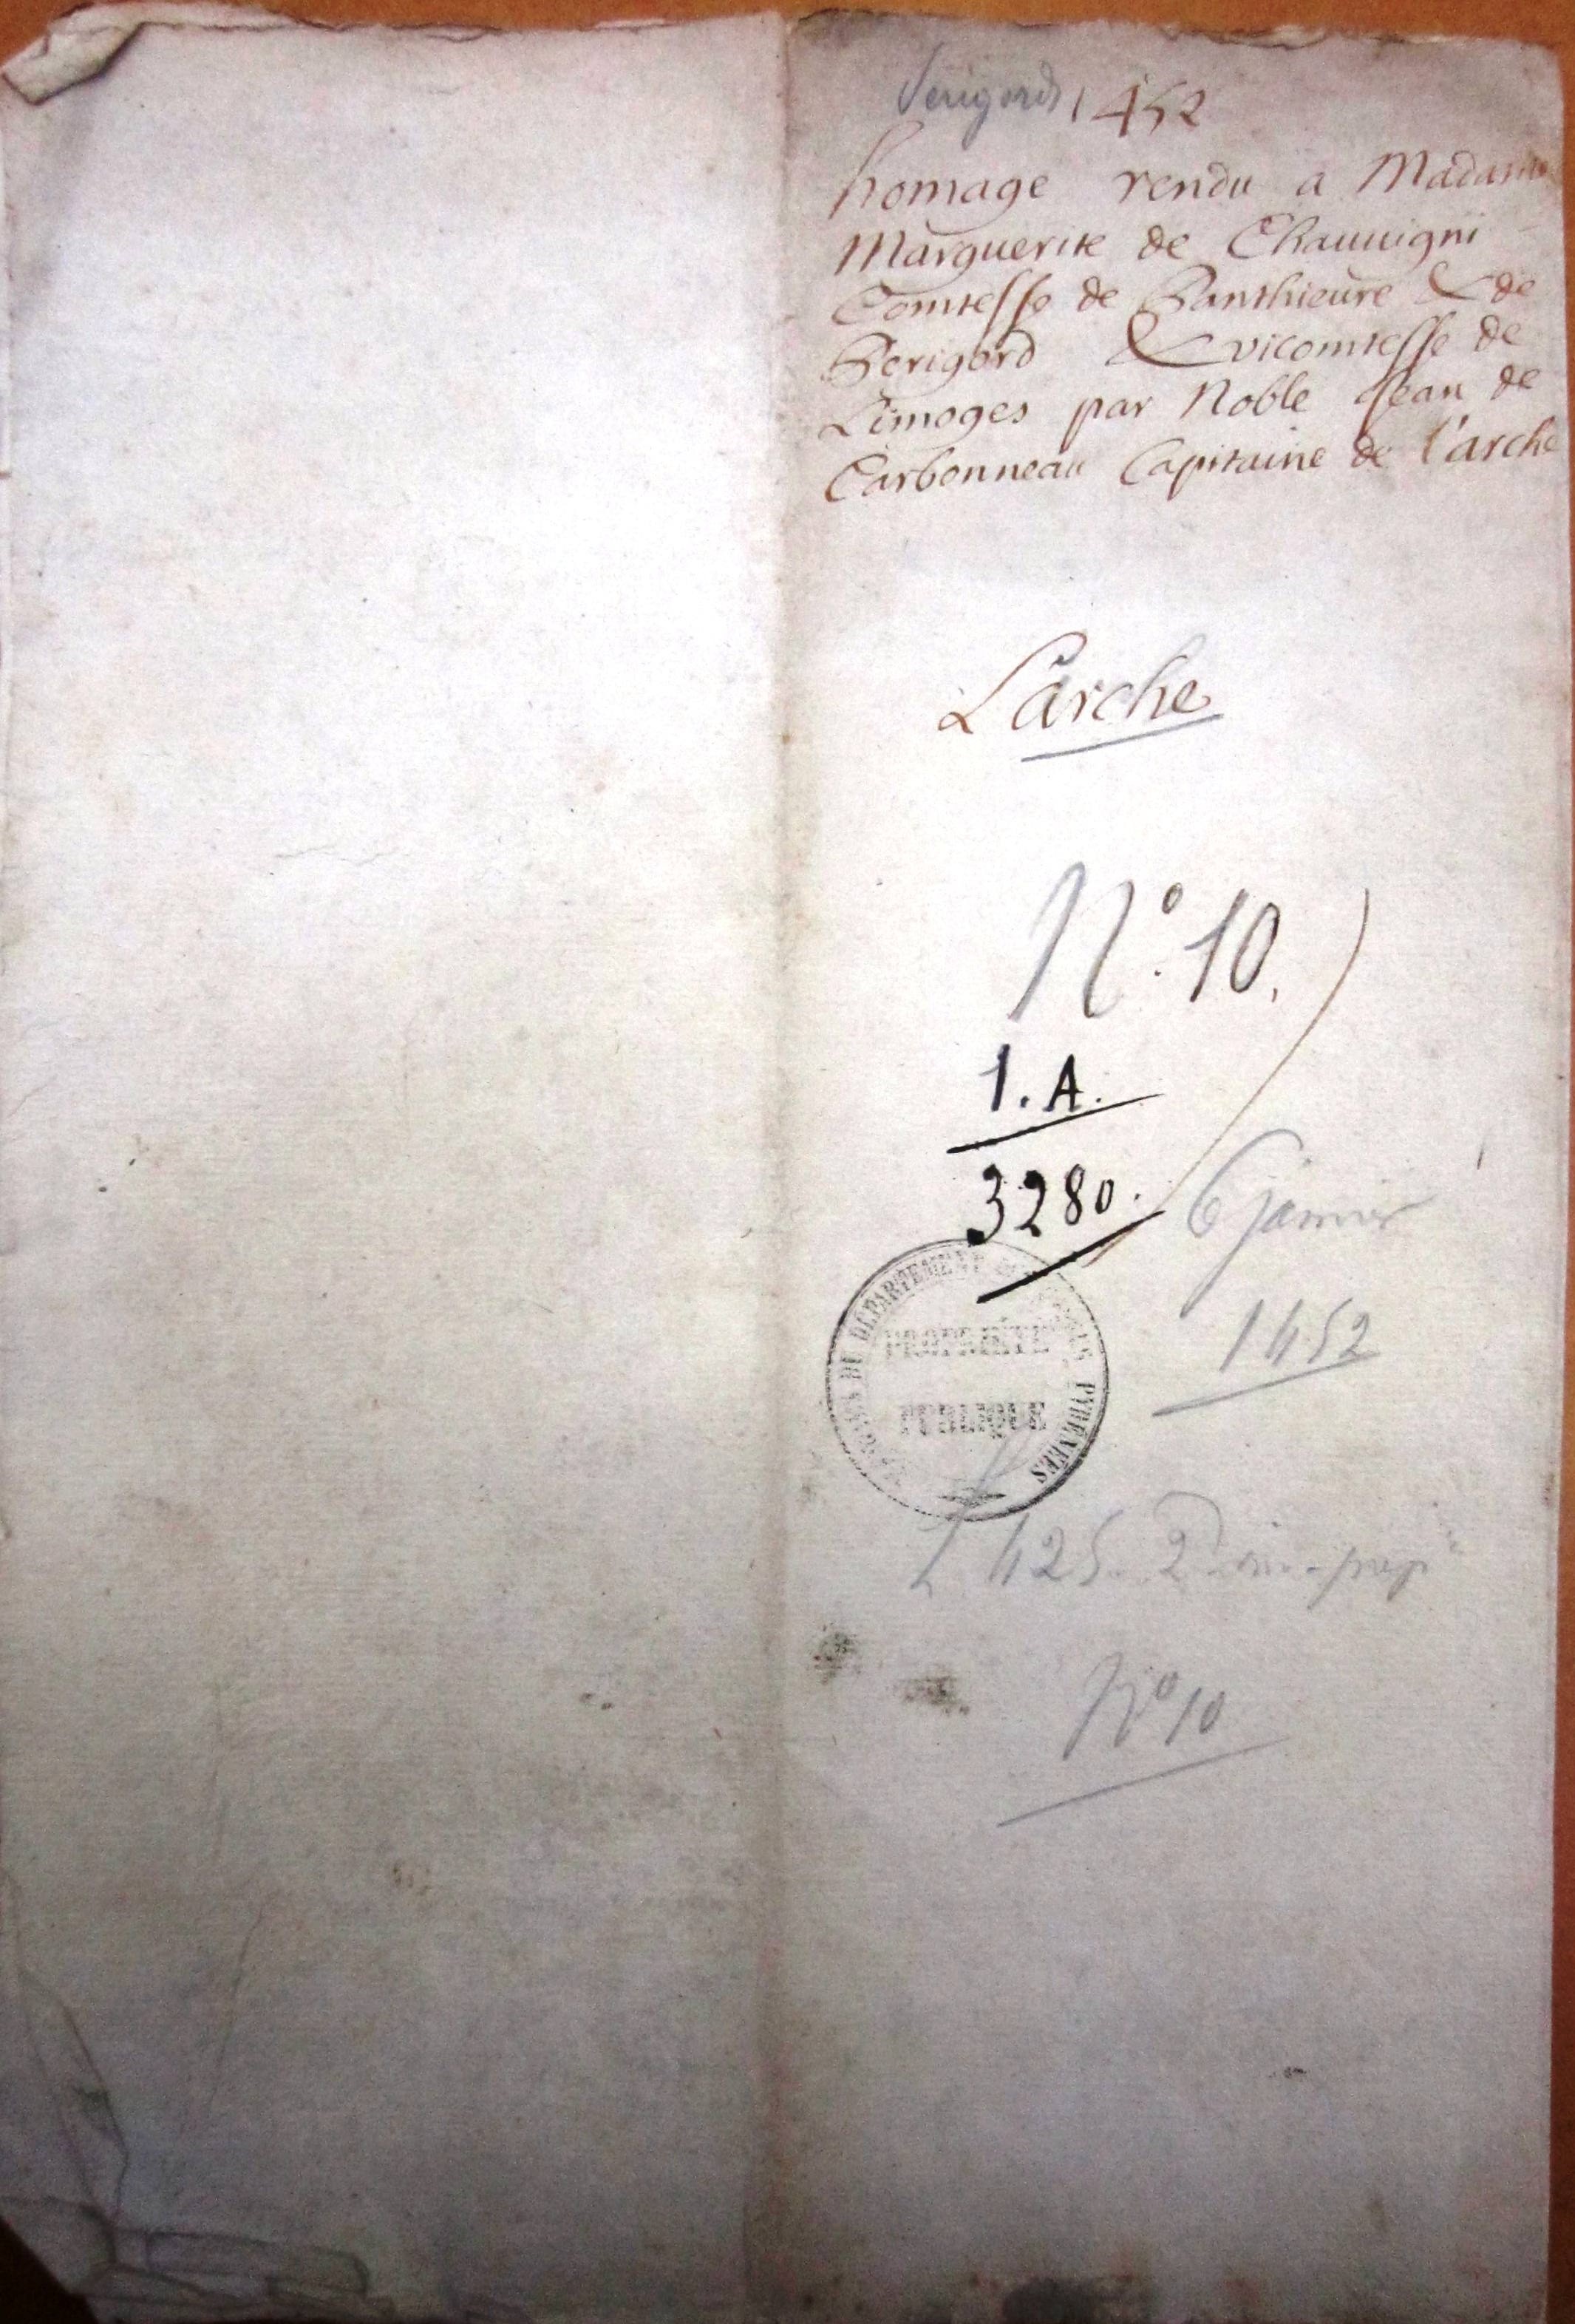 Perigord 1452
homage rendu a Madame
Marguerite de Chauuigni
Comtesse de Panthieure & de
Perigord & vicomtesse de
Limoges par Noble Jean de
Carbonneau Capitaine de l'arche
L'arche
N° 10.
1. A.
3280.
6 janvier
1452
ARCHIVES DU DÉPARTEMENT DES BASSES PYRÉNÉES
PROPRIÉTÉ
PUBLIQUE
L 425. 2
N° 10